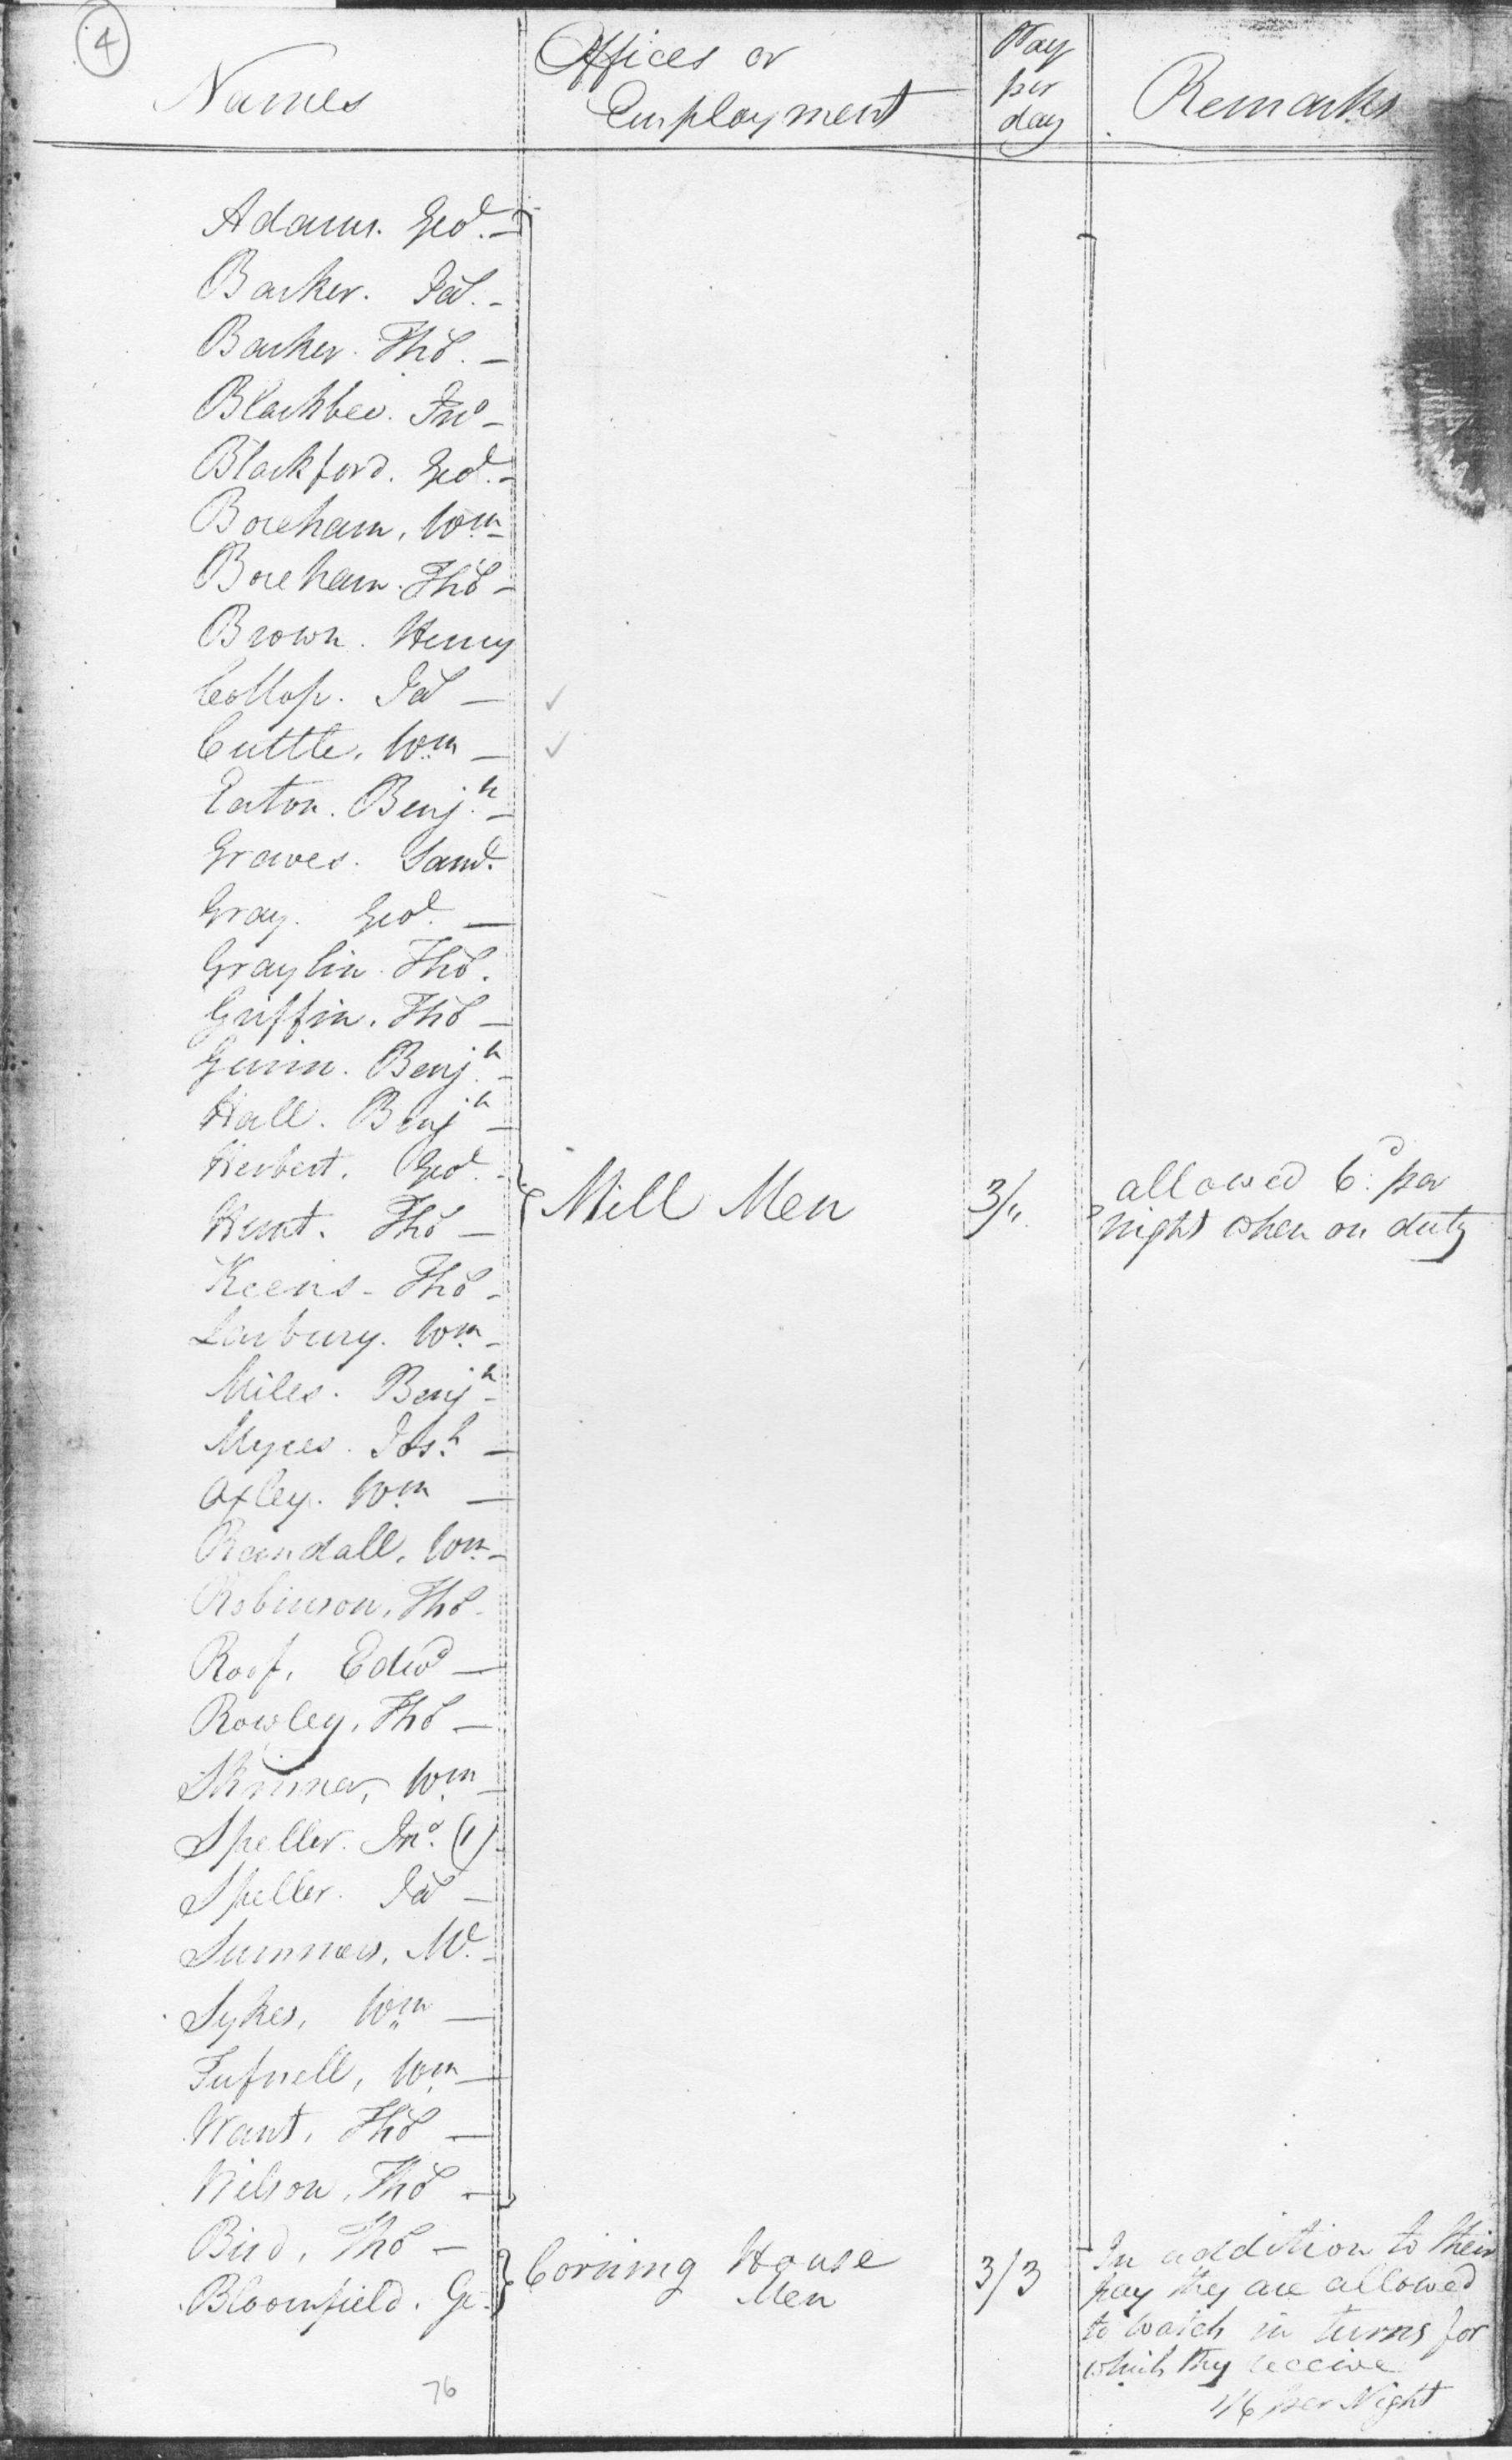 4
Names
Offices or
Employment
Pay
per
day
Remarks
Adams. Geo.
Barker. Jas. -
Barker. Thos. -
Blackbee. Jno -
Blackford. Geo. -
Boreham, Wm -
Boreham. Thos -
Brown. Henry
Collop. Jas - ✓
Cuttle, Wm - ✓
Eaton. Benjn -
Graves. Saml.
Gray. Geo. -
Graylin. Thos.
Griffin. Thos -
Gunn. Benjn -
Hall. Benjn -
Herbert. Geo. -
Hunt. Thos -
Mill Men
3/"
allowed 6d per
night when on duty
Keens - Thos -
Larbury. Wm -
Miles. Benjn -
Myres. Josh -
Oxley. Wm -
Randall, Wm -
Robinson, Thos -
Roof, Edwd -
Rowley, Thos -
Skinner, Wm -
Speller. Jno. (1)
Speller. Jas -
Summers,
Sykes, Wm -
Tufnell, Wm -
Want, Thos -
Wilson, Thos -
Bird, Thos -
Bloomfield. Ge.
Corning House
Men
3/3
In addition to their
pay they are allowed
to watch in turns for
which they receive
1/6 per Night
76